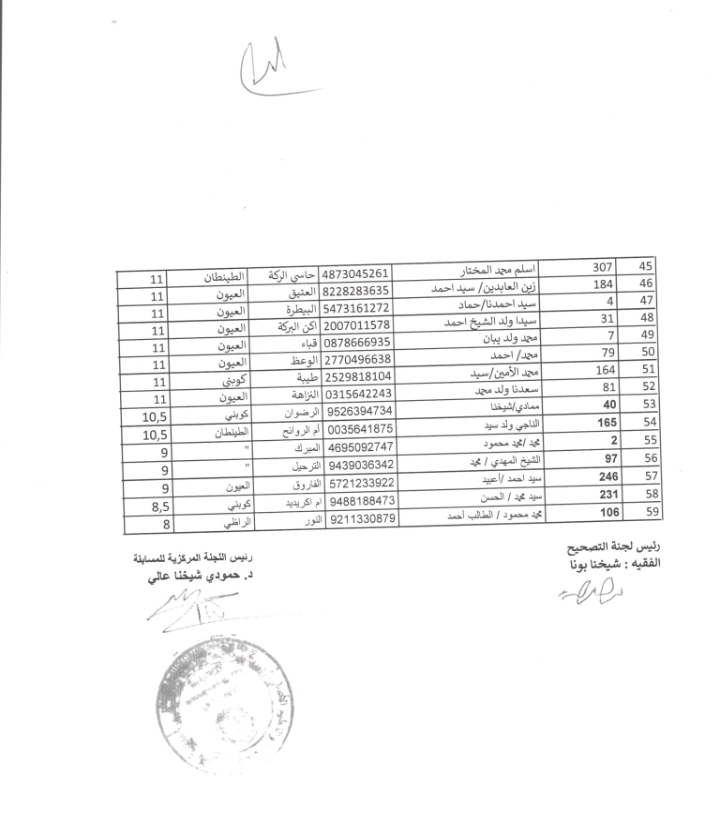 45 307 اسلم محمد المختار 4873045261 حاسي الركة الطينطان 11
46 184 زين العابدين/ سيد احمد 8228283635 العتيق العيون 11
47 4 سيد احمدنا/حماد 5473161272 البيطرة العيون 11
48 31 سيدا ولد الشيخ احمد 2007011578 اكن البركة العيون 11
49 7 محمد ولد يبان 0878666935 قباء العيون 11
50 79 محمد/ احمد 2770496638 الوعظ العيون 11
51 164 محمد الأمين/سيد 2529818104 طيبة كوبني 11
52 81 سعدنا ولد محمد 0315642243 النزاهة العيون 11
53 40 ممادي/شيخنا 9526394734 الرضوان كوبني 10,5
54 165 الناجي ولد سيد 0035641875 أم الروائح الطينطان 10,5
55 2 محمد /محمد محمود 4695092747 المبرك " 9
56 97 الشيخ المهدي / محمد 9439036342 الترحيل " 9
57 246 سيد احمد /أعبيد 5721233922 الفاروق العيون 9
58 231 سيد محمد / الحسن 9488188473 ام اكريديد كوبني 8,5
59 106 محمد محمود / الطالب أحمد 9211330879 النور الراظي 8
رئيس لجنة التصحيح
الفقيه : شيخنا بونا
رئيس اللجنة المركزية للمسابقة
د. حمودي شيخنا عالي